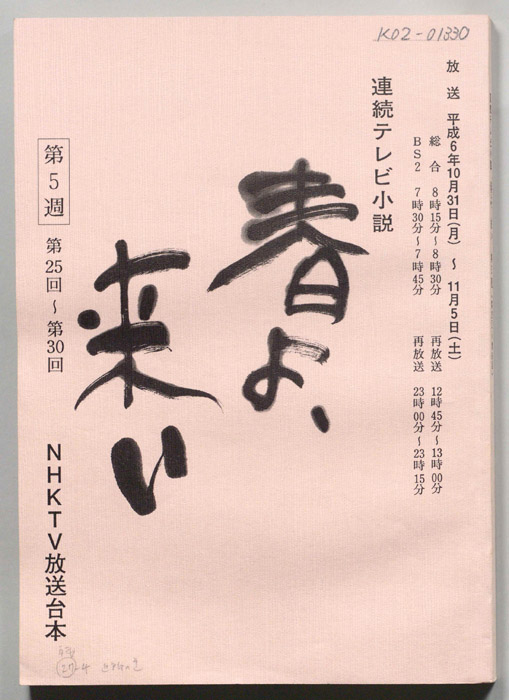 K02-01330
放送 平成6年10月31日(月)〜11月5日(土)
総合 8時15分〜8時30分 再放送 12時45分〜13時00分
BS2 7時30分〜7時45分 再放送 23時00分〜23時15分
連続テレビ小説
春よ、
来い
第5週
第25回〜第30回
NHKTV放送台本